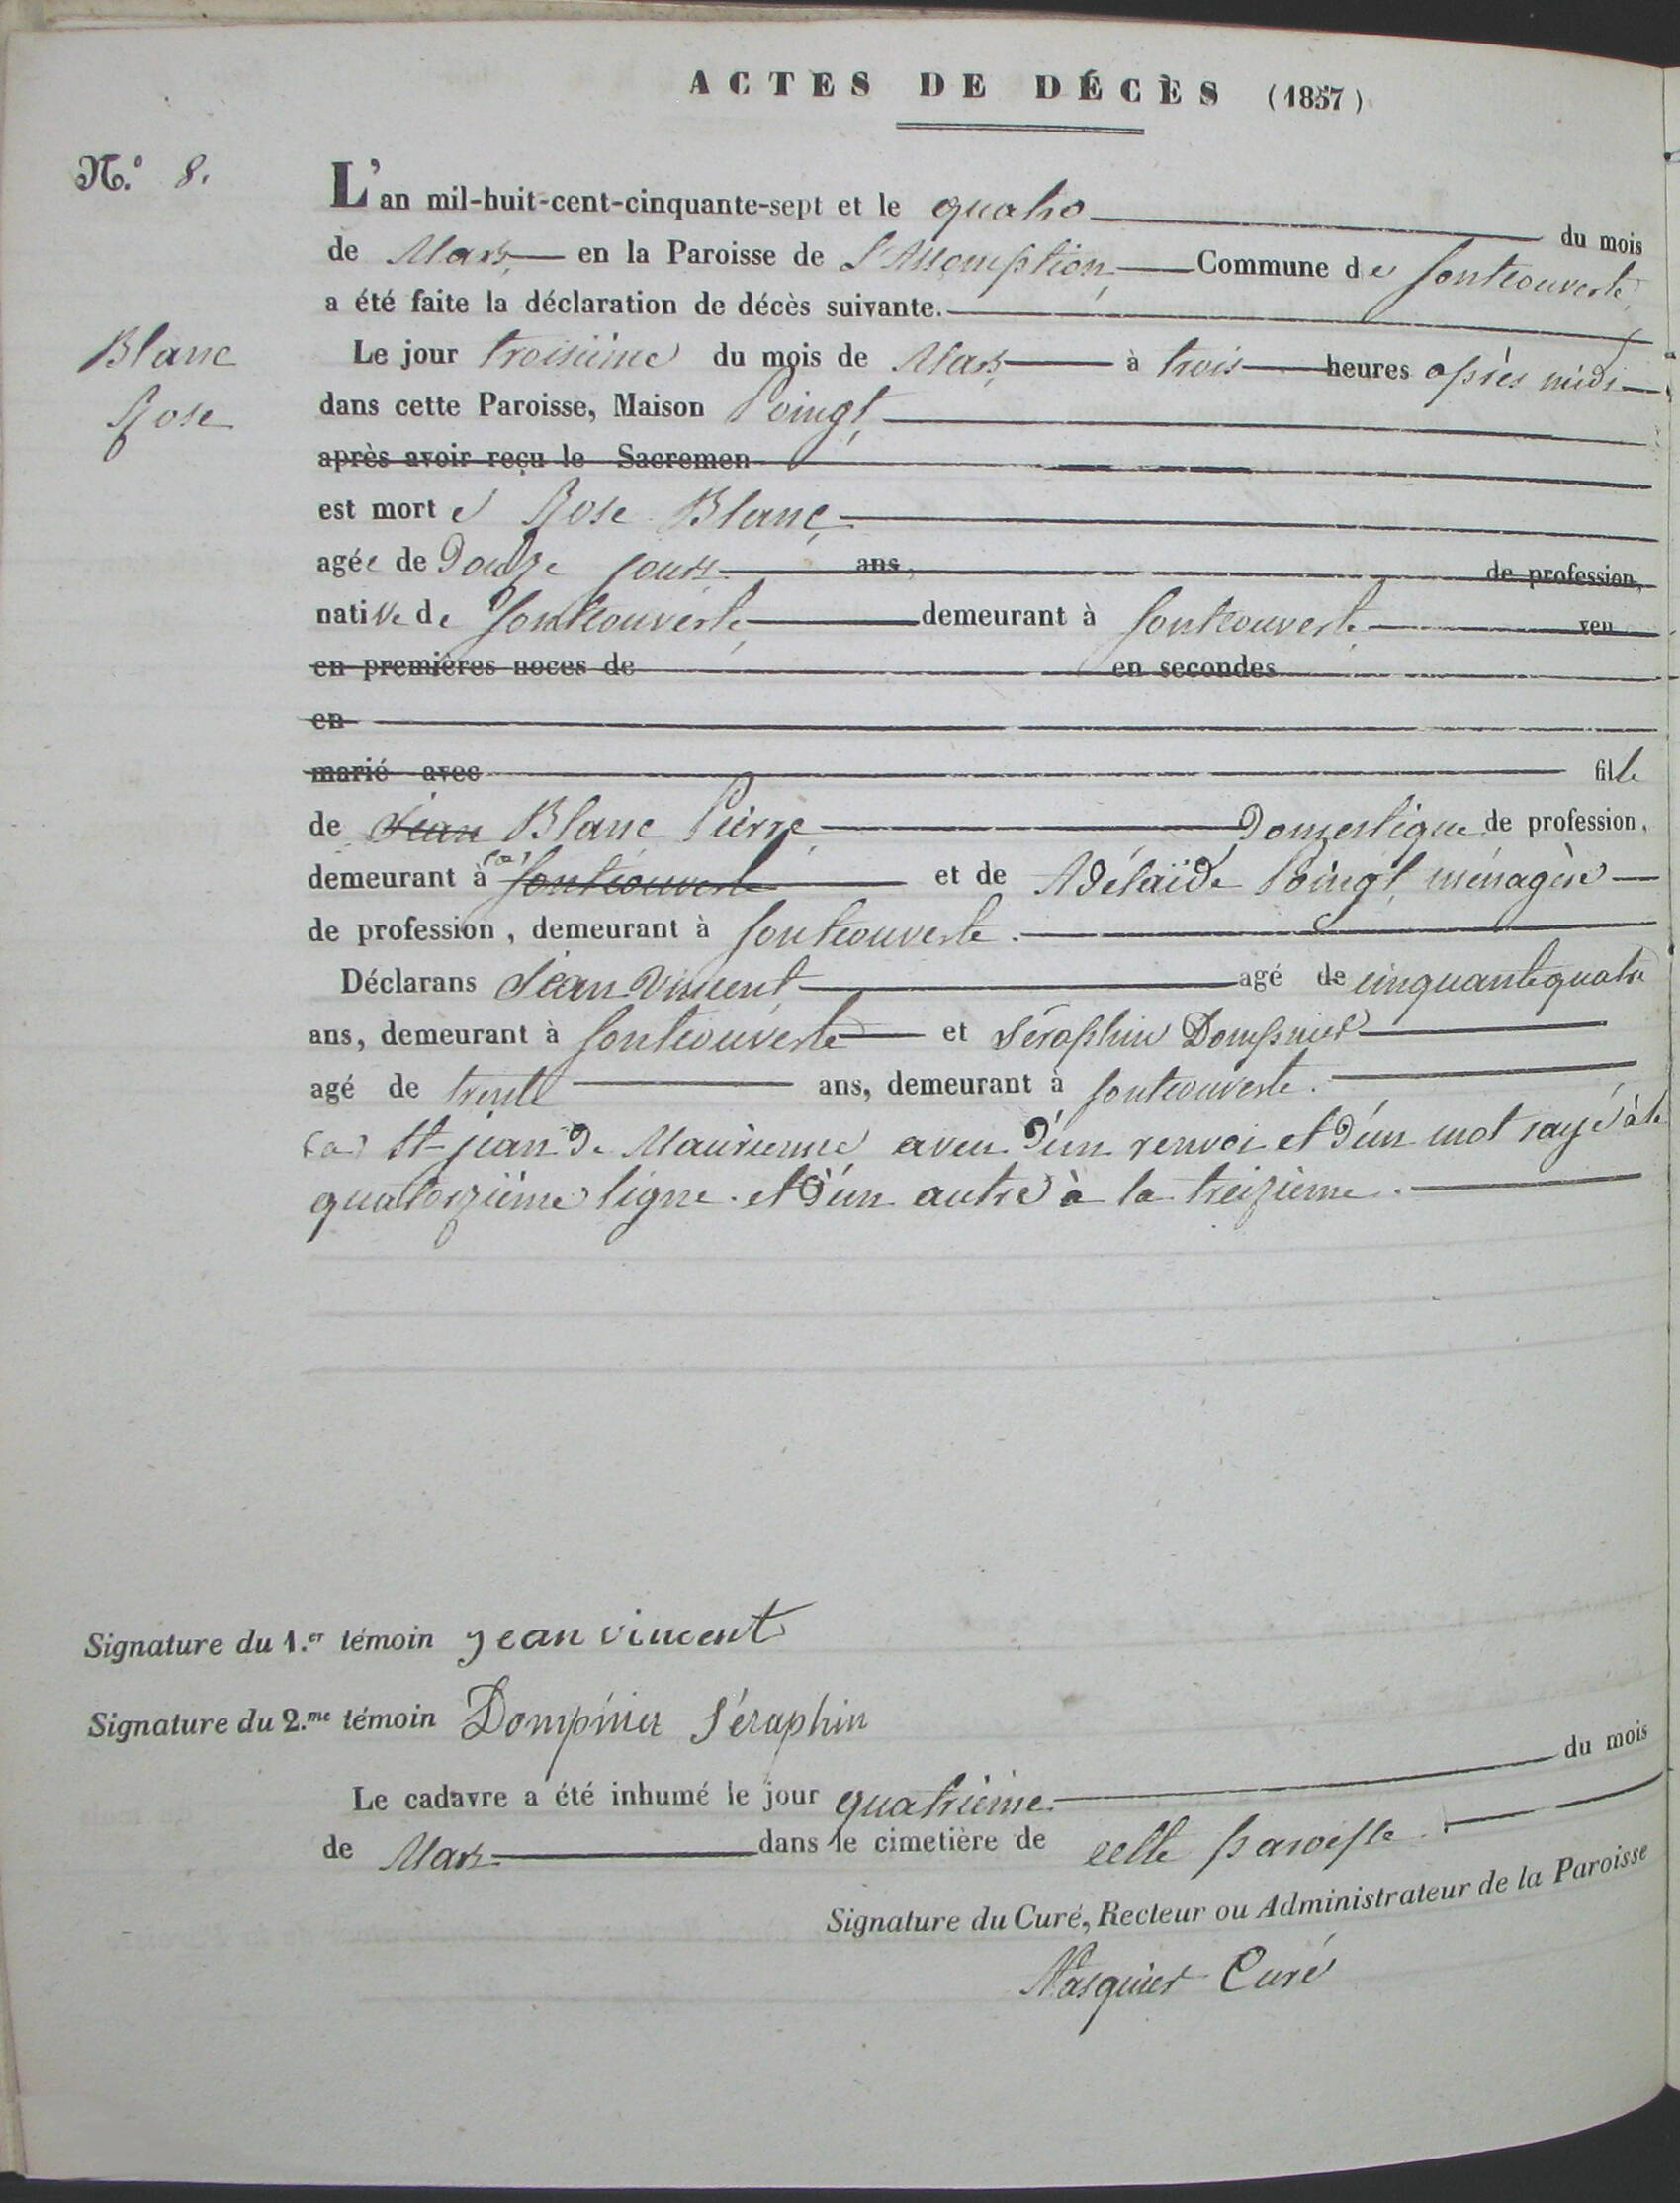 ACTES DE DÉCÈS (1857)
N.º 8.
L'an mil-huit-cent-cinquante-sept et le quatre du mois
de Mars, en la Paroisse de l'Assomption, Commune de fontcouverte,
a été faite la déclaration de décès suivante.
Blanc
Rose
Le jour troisième du mois de Mars, à trois heures après midi
dans cette Paroisse, Maison Poingt,
après avoir reçu le Sacremen
est morte Rose Blanc,
agée de Douze jours ans, de profession,
native de fontcouverte, demeurant à fontcouverte, veu
en premières noces de en secondes
en
marié avec fille
de Jean Blanc Pierre, Domestique de profession,
demeurant à (a) fontcouverte et de Adélaïde Poingt, ménagère
de profession, demeurant à fontcouverte.
Déclarans Jean Vincent agé de cinquante quatre
ans, demeurant à fontcouverte et Séraphin Dompnier
agé de trente ans, demeurant à fontcouverte.
(a) St-jean de Maurienne aveu d'un renvoi et d'un mot rayé à la
quatorzième ligne. et d'un autre à la treizième.
Signature du 1.er témoin jean vincent
Signature du 2.me témoin Dompnier Séraphin
Le cadavre a été inhumé le jour quatrième du mois
de Mars dans le cimetière de cette paroisse.
Signature du Curé, Recteur ou Administrateur de la Paroisse
Curé